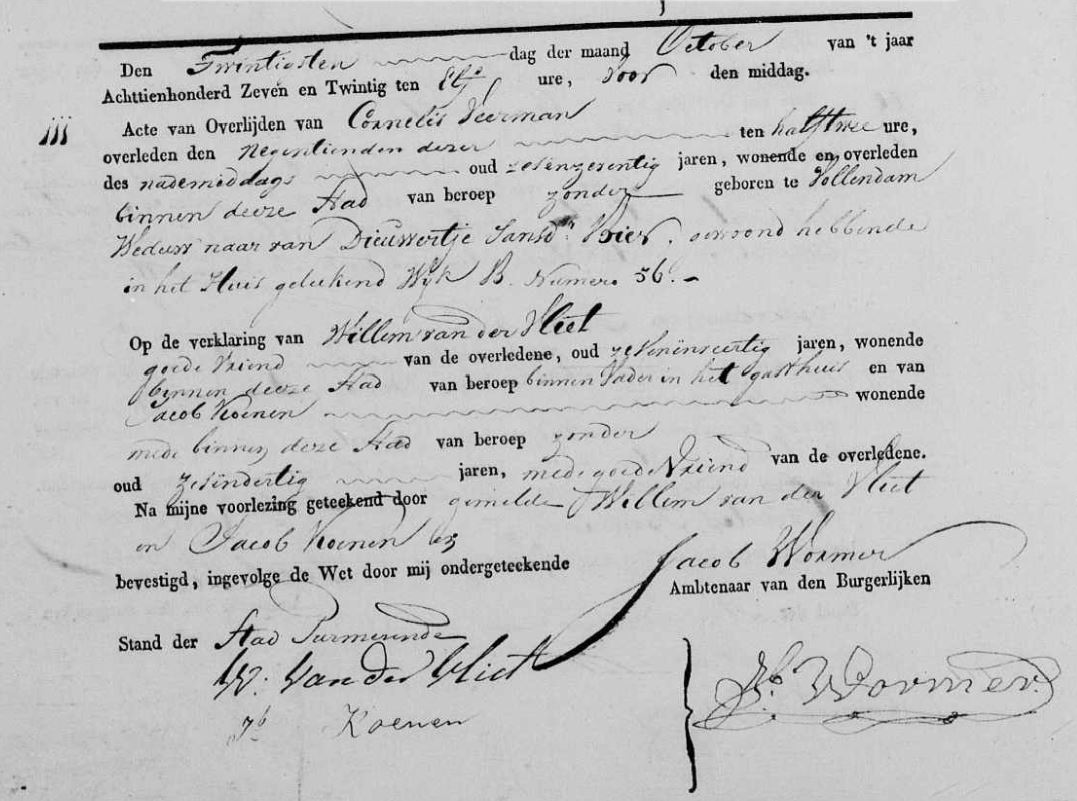 Den Twintigsten dag der maand October van 't jaar
Achttienhonderd Zeven en Twintig ten Elf ure, voor den middag.
Acte van Overlijden van Cornelis Veerman
overleden den negentienden dezer ten half twee ure,
des nademiddags oud zesenzesentig jaren, wonende en overleden
binnen deeze Stad van beroep zonder geboren te Vollendam
Weduw naar van Dieuwertje Jansdr. gewoond hebbende
in het Huis geteekend Wyk B. Numero 56.
Op de verklaring van Willem van der Vliet
goede Vriend van de overledene, oud zevenënveertig jaren, wonende
binnen deeze Stad van beroep binnen Vader in het gasthuis en van
Jacob Koenen wonende
mede binnen deze Stad van beroep zonder
oud zesindertig jaren, mede goede Vriend van de overledene.
Na mijne voorlezing geteekend door gemelde Willem van der Vliet
en Jacob Koenen en
bevestigd, ingevolge de Wet door mij ondergeteekende Jacob Wormer
Ambtenaar van den Burgerlijken
Stand der Stad Purmerende
W: van der Vliet
Jb Koenen
Jb. Wormer.